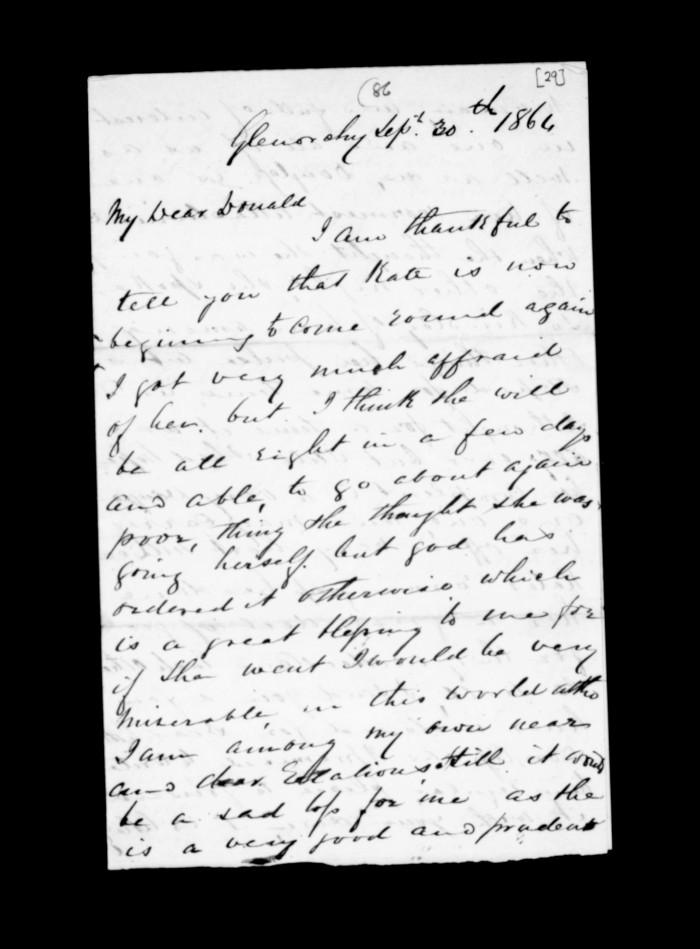 (86
[29]
Glenorchy Sept. 30th. 1864
My Dear Donald
I am thankful to
tell you that Kate is now
beginning to come round again
I got very much affraid
of her. but I think she will
be all right in a few days
and able, to go about again
poor, thing she thought she was
going herself. but god has
ordered it otherwise which
is a great blessing to me for
if she went I would be very
miserable, in this world altho
I am among my own near
and dear Relations still it would
be a sad loss for me as she
is a very good and prudent